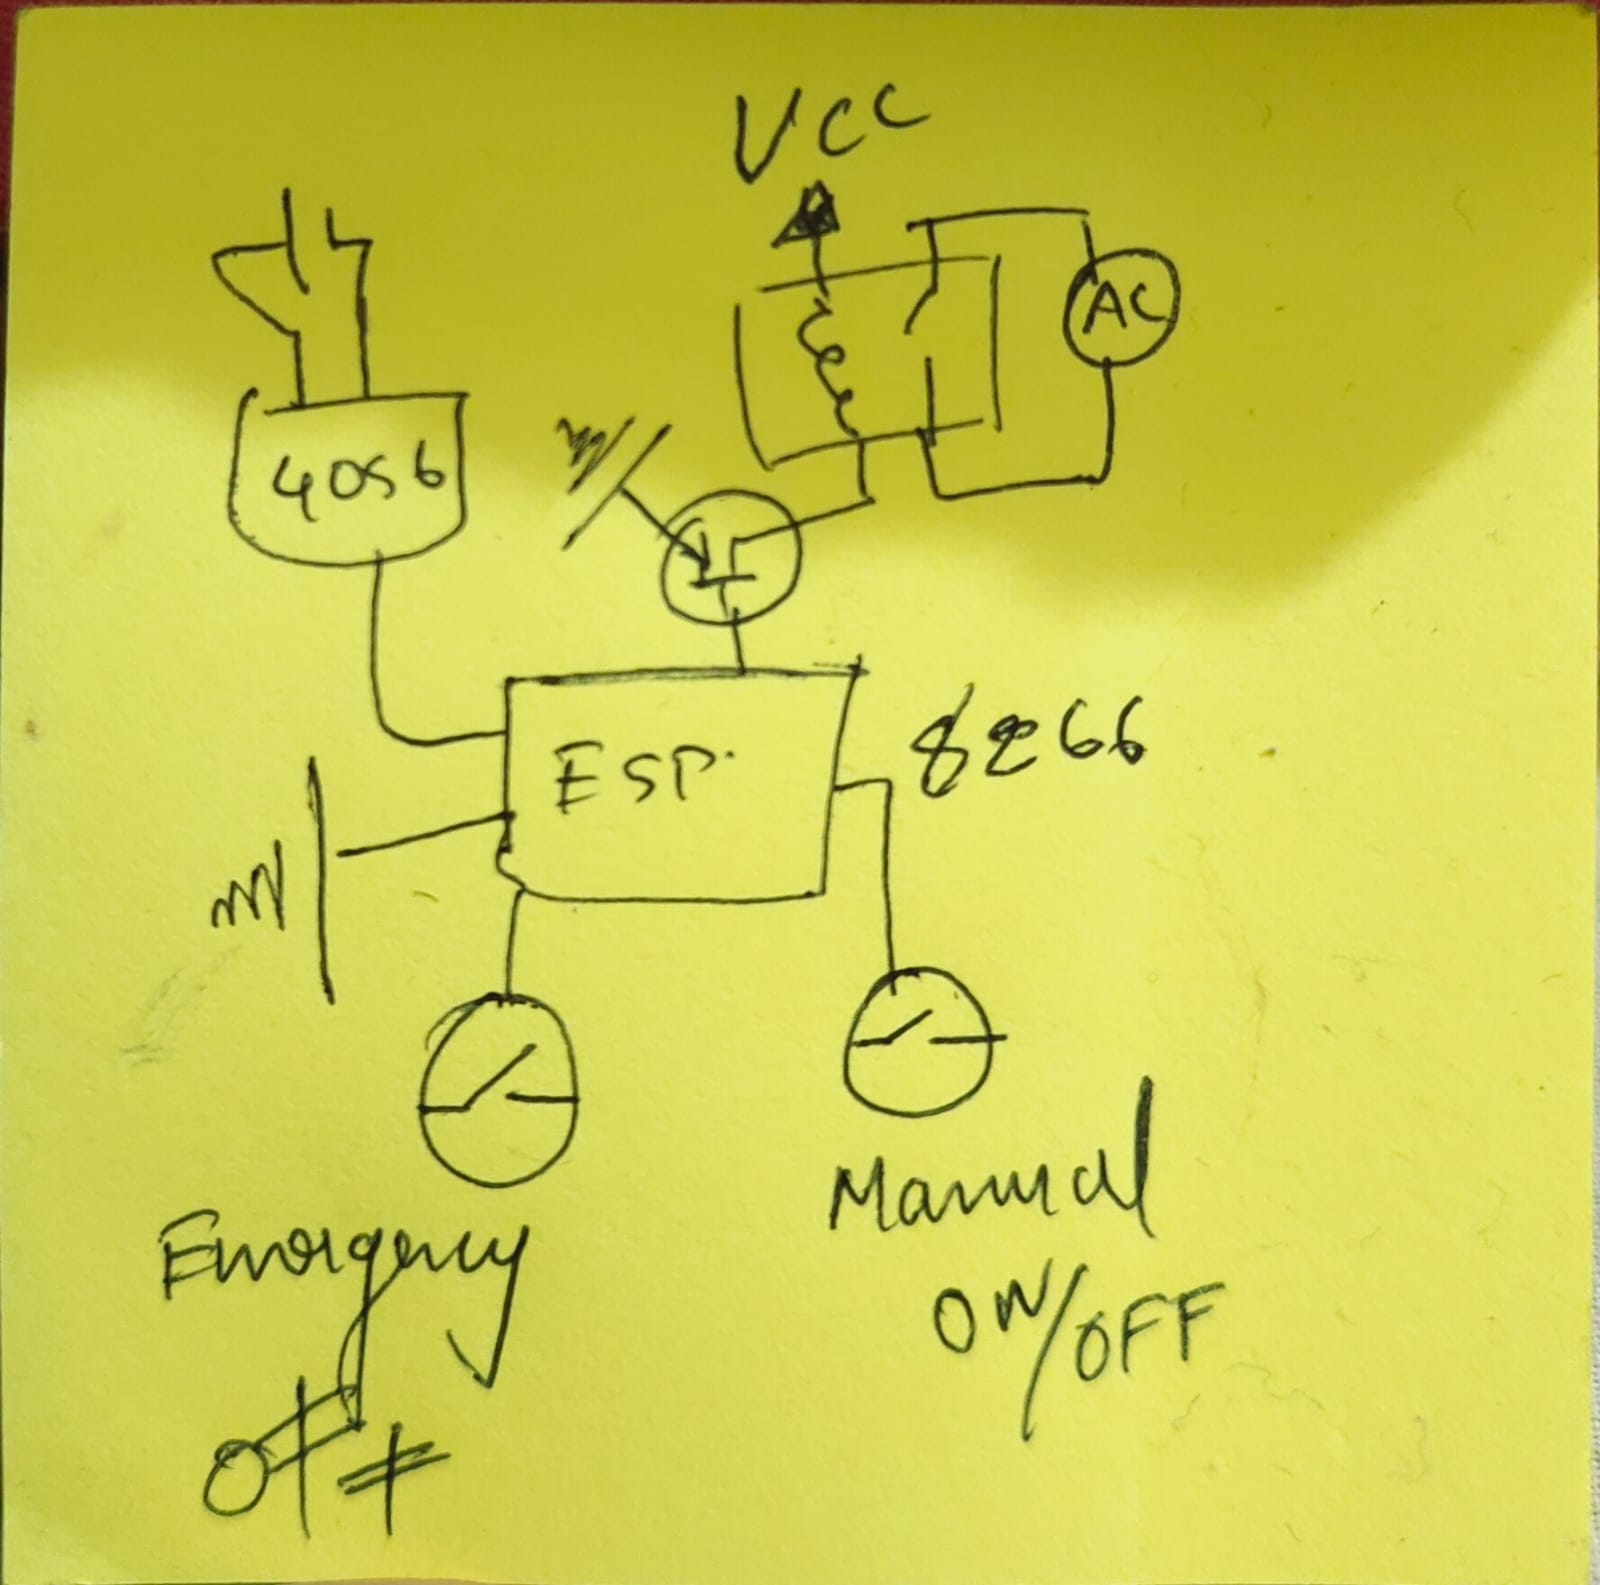 VCC
AC
4056
ESP
8266
Emergency
OFF
Manual
ON/OFF